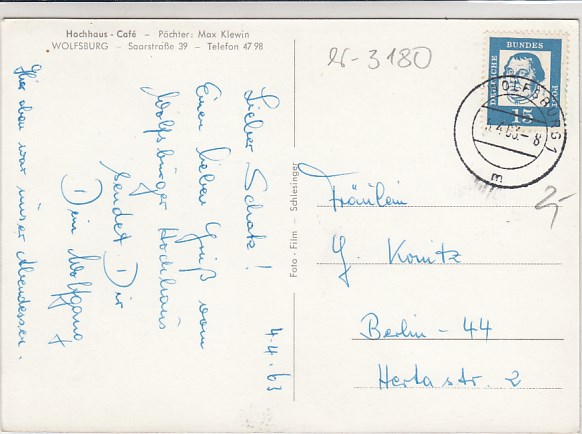 Hochhaus - Café - Pächter: Max Klewin
WOLFSBURG - Saarstraße 39 - Telefon 47 98
4.4.63
Lieber Schatz!
Einen lieben Gruß vom
Wolfsburger Hochhaus
sendet Dir
Dein Wolfgang
Hier oben war unser Abendessen.
Foto - Film - Schlesinger
25-3180
DEUTSCHE
BUNDES
POST
15
WOLFSBURG 1
4.63.- 8
m
Fräulein
G. Konitz
Berlin - 44
Hertastr. 2
2,-